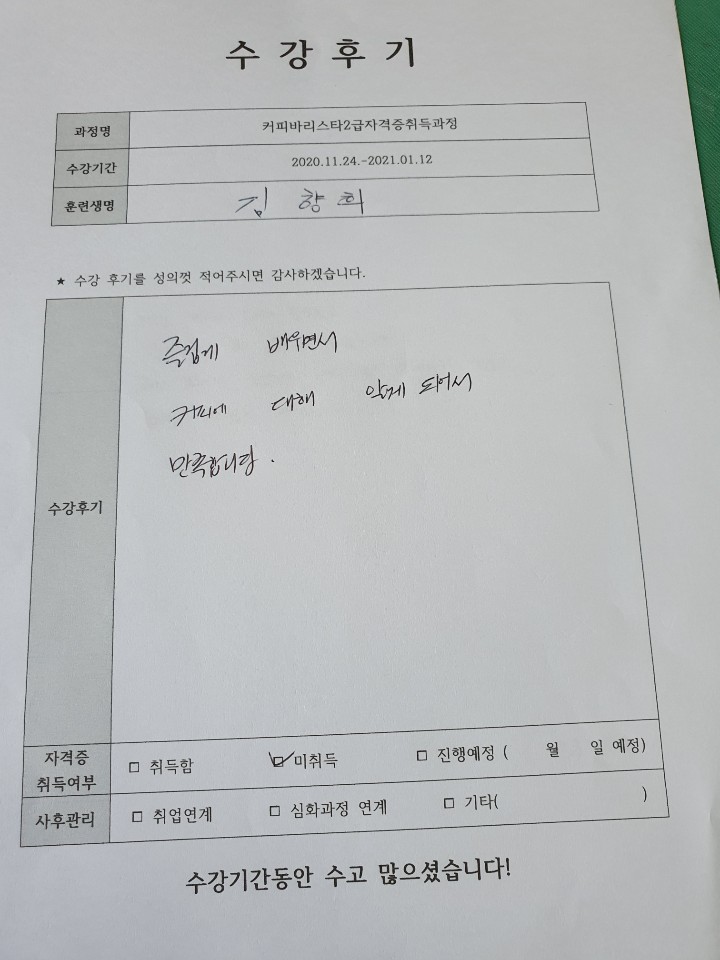 수 강 후 기
과정명 커피바리스타2급자격증취득과정
수강기간 2020.11.24.-2021.01.12
훈련생명 김 향 희
★ 수강 후기를 성의껏 적어주시면 감사하겠습니다.
즐겁게 배우면서
커피에 대해 알게 되어서
수강후기
만족합니당.
자격증 취득여부 □ 취득함 ☑ 미취득 □ 진행예정 ( 월 일 예정)
사후관리 □ 취업연계 □ 심화과정 연계 □ 기타( )
수강기간동안 수고 많으셨습니다!